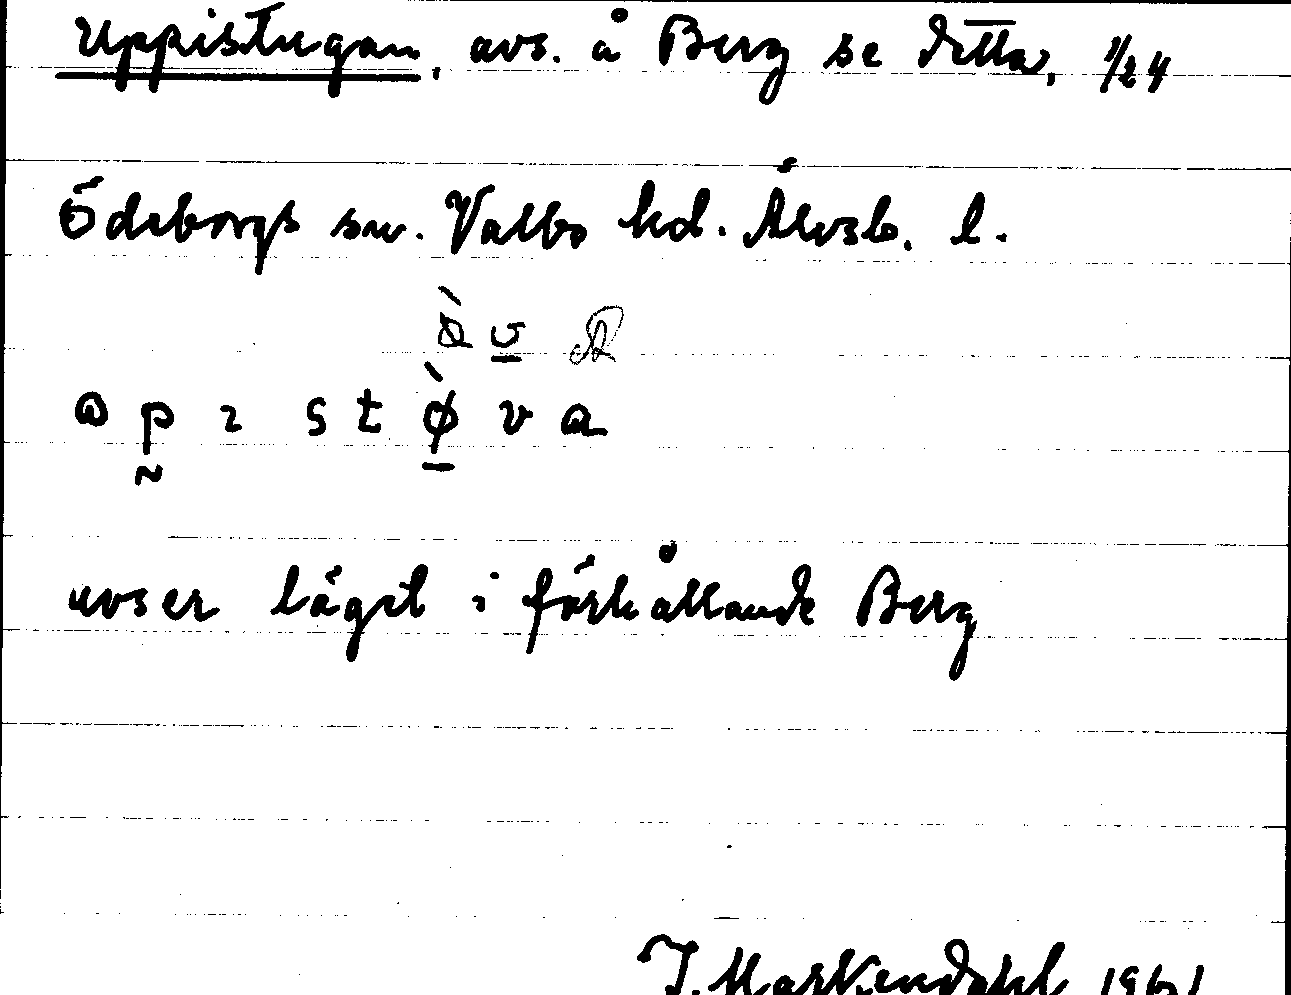 Uppistugan, avs. å Berg se detta, 1/24
Ödeborgs sn. Valbo hd. Älvsb. l.
avser läget i förhållande Berg
1961